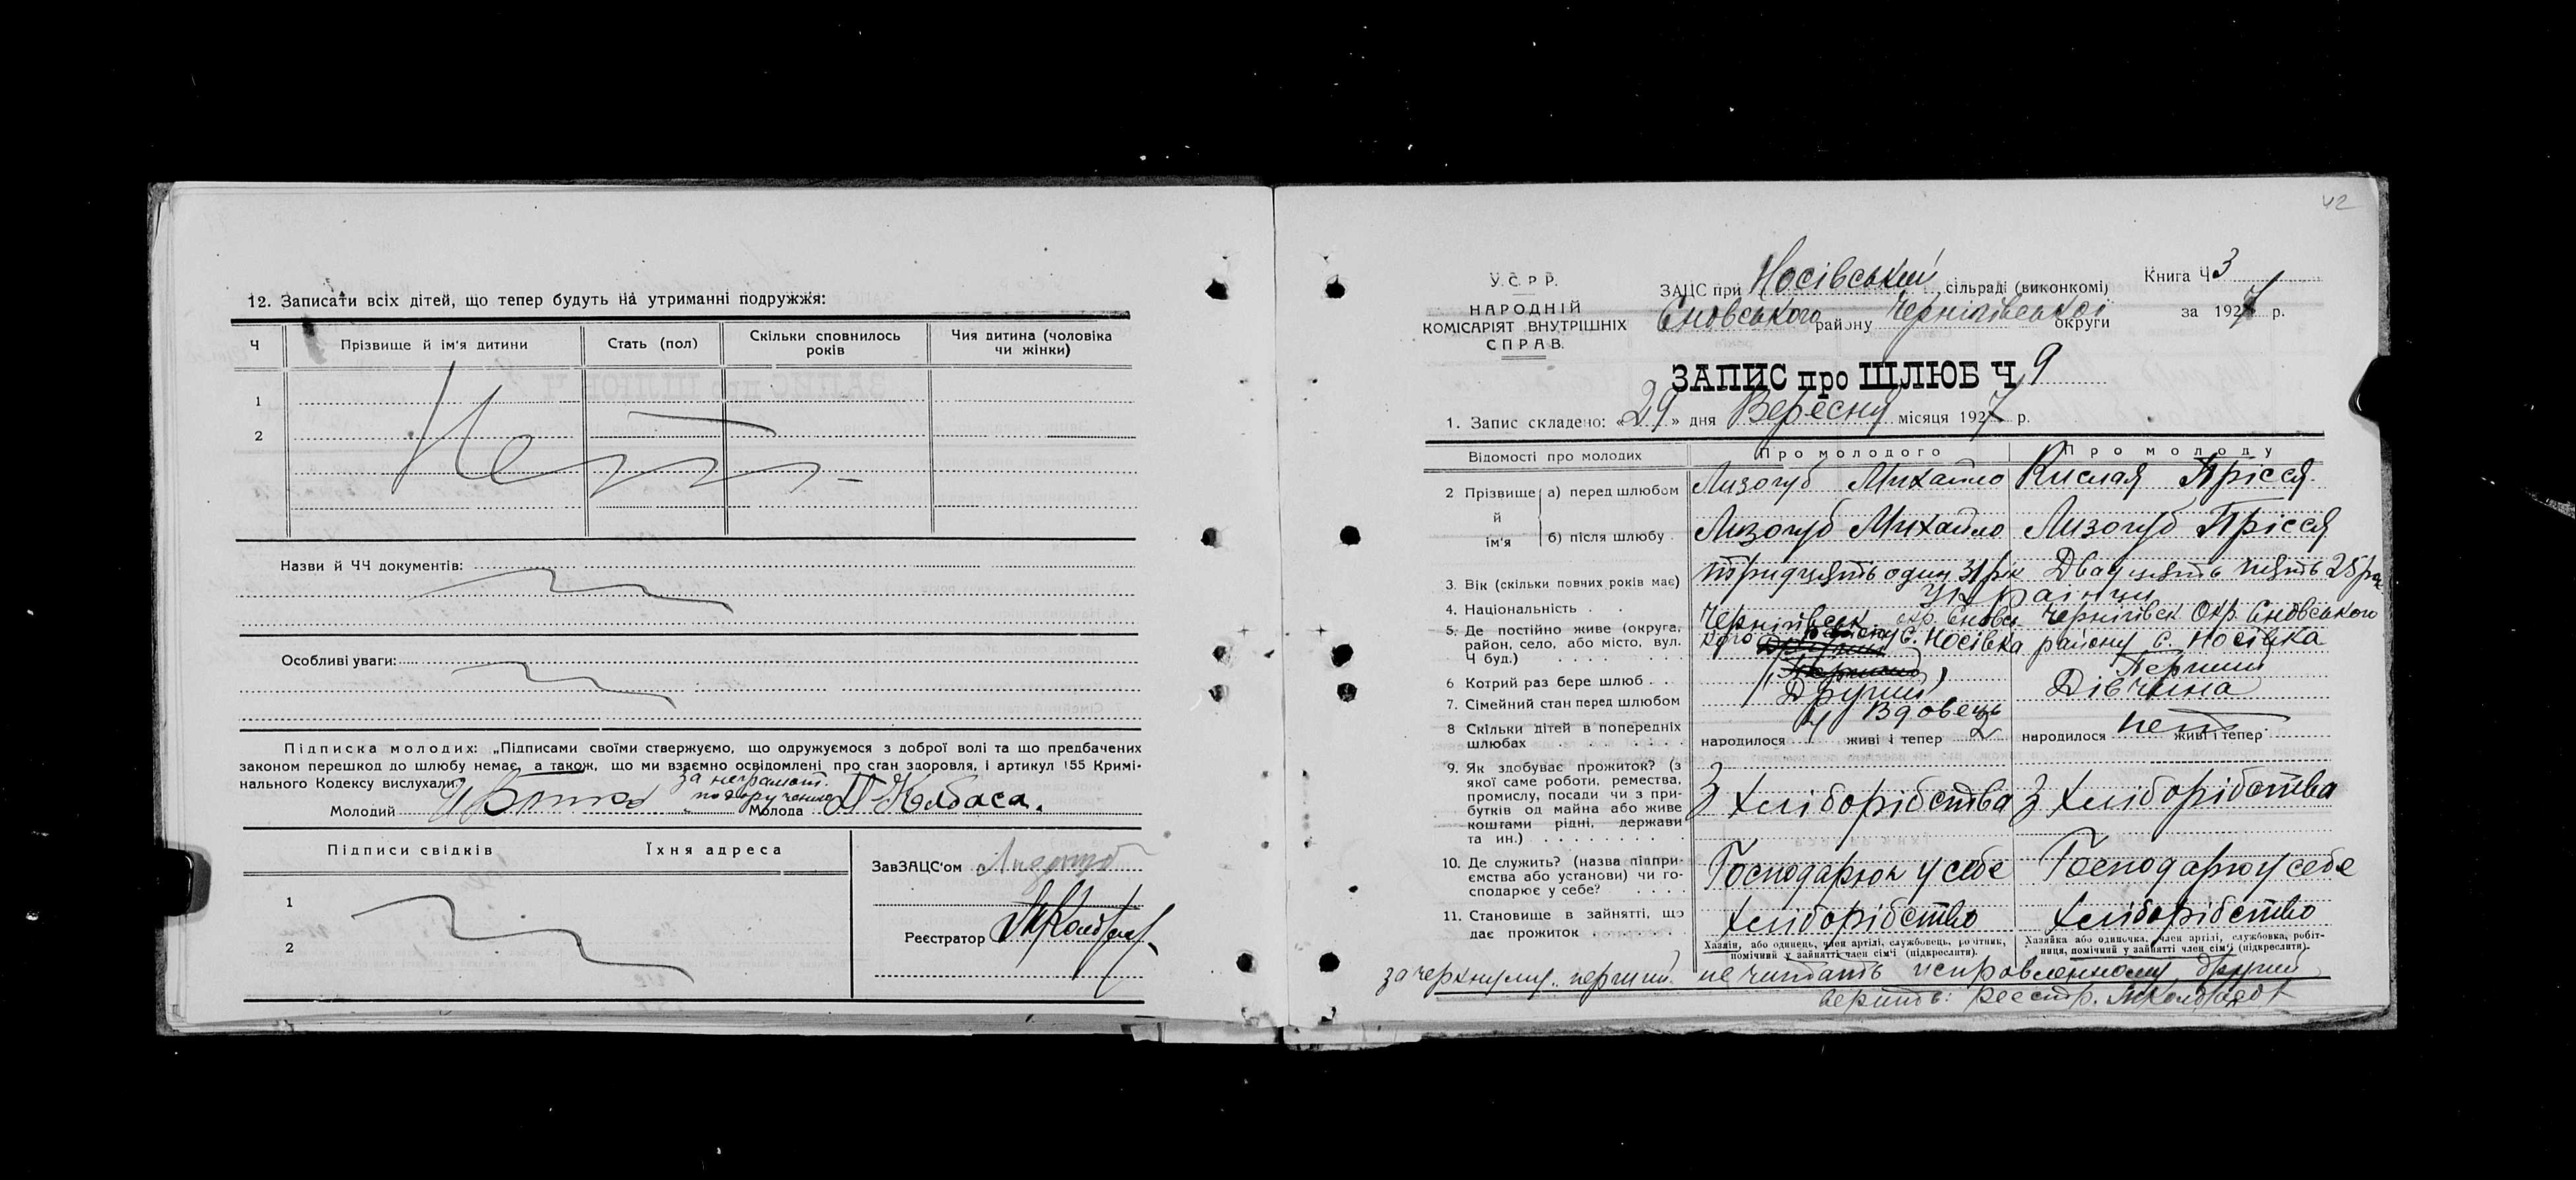 12. Записати всіх дітей, що тепер будуть на утриманні подружжя:
Ч Прізвище й ім'я дитини Стать (пол) Скільки сповнилось років Чия дитина (чоловіка чи жінки)
1
2
Нет
Назви й ЧЧ документів:
Особливі уваги:
Підписка молодих: „Підписами своїми стверржуємо, що одружуємося з доброї волі та що предбачених
законом перешкод до шлюбу немає, а також, що ми взаємно освідомлені про стан здоровля, і артикул 155 Кримі-
нального Кодексу вислухали.
за неграмот.
Молодий подорученію Молода Колбаса.
Підписи свідків Їхня адреса
1
2
ЗавЗАЦС'ом Лизогуб
Реєстратор
42
У.С.Р.Р.
НАРОДНІЙ
КОМІСАРІЯТ ВНУТРІШНІХ
СПРАВ.
ЗАЦС при Носівський сільраді (виконкомі)
Сновського району Чернігівської округи
Книга Ч 3
за 1927 р.
ЗАПИС про ШЛЮБ Ч 9
1. Запис складено: «29» дня Вересня місяця 1927 р.
Відомості про молодих Про молодого Про молоду
2 Прізвище й ім'я а) перед шлюбом Лизогуб Михайло Кислая Прісся
б) після шлюбу Лизогуб Михайло Лизогуб Прісся
3. Вік (скільки повних років має) тридцять один 31 рік Двадцять пять 25 р.
4. Національність . . Українци
5. Де постійно живе (округа, район, село, або місто, вул. Ч буд.) Чернігівськ окр. Сновсь кого району с. Носівка Чернігівск Окр. Сновського району с. Носівка
6 Котрий раз бере шлюб . . Другий Перший
7. Сімейний стан перед шлюбом Вдовець Дівчина
8 Скільки дітей в попередніх шлюбах народилося 4 живі і тепер 2 народилося нет живі і тепер
9. Як здобуває прожиток? (з якої саме роботи, ремества, промислу, посади чи з прибутків од майна або живе коштами рідні, держави та ин.) З хліборібства З хліборібства
10. Де служить? (назва підприємства або установи) чи господарює у себе? Господарюю у себе Господарюю у себе
11. Становище в зайнятті, що дає прожиток хліборібство хліборібство
Хазяїн, або одинець, член артілі, службовець, робітник, помічний у зайнятті член сім'ї (підкреслити).
Хазяйка або одиночка, член артілі, службовка, робіт-
ниця, помічний у зайнятті член сім'ї (підкреслити).
зачеркнутому перший не читать исправленному другий
верить: реєстр.